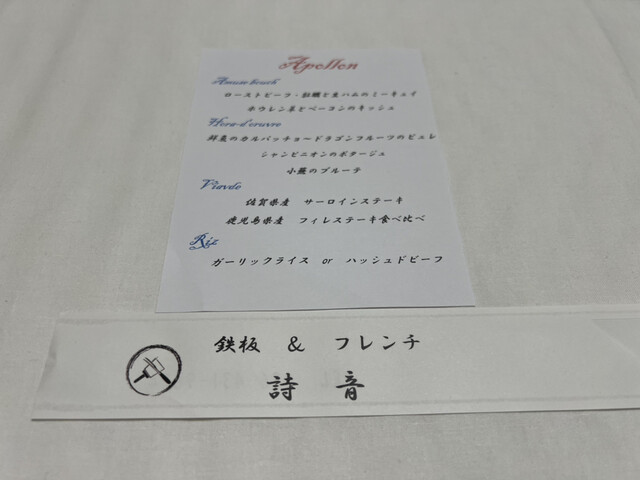 Apollon
Amuse bouch
ローストビーフ・牡蠣と生ハムのミーキュイ
ホウレン草とベーコンのキッシュ
Hors-d'oeuvre
鮮魚のカルパッチョ～ドラゴンフルーツのピュレ
シャンピニオンのポタージュ
小蕪のブルーテ
Viande
佐賀県産 サーロインステーキ
鹿児島県産 フィレステーキ食べ比べ
Riz
ガーリックライス or ハッシュドビーフ
鉄板 & フレンチ
詩音